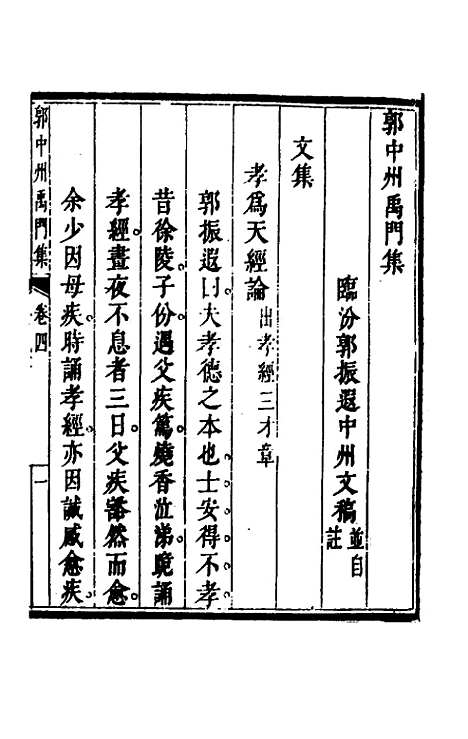 郭中州禹門集
臨汾郭振遐中州文稿並自註
文集
孝爲天經論出孝經三才章
郭振遐曰夫孝德之本也士安得不孝。
昔徐陵子份。遇父疾篤。燒香泣涕。跪誦
孝經。晝夜不息者三日。父疾豁然而愈。
余少因母疾。時誦孝經。亦因誠感愈疾。
郭中州禹門集 卷四 一